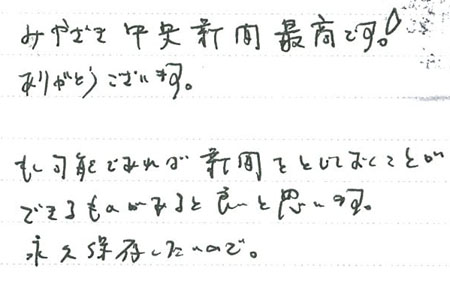 みやざき中央新聞最高です。
ありがとうございます。
もし可能であれば新聞をとじておくことが
できるものがあると良いと思います。
永久保存したいので。